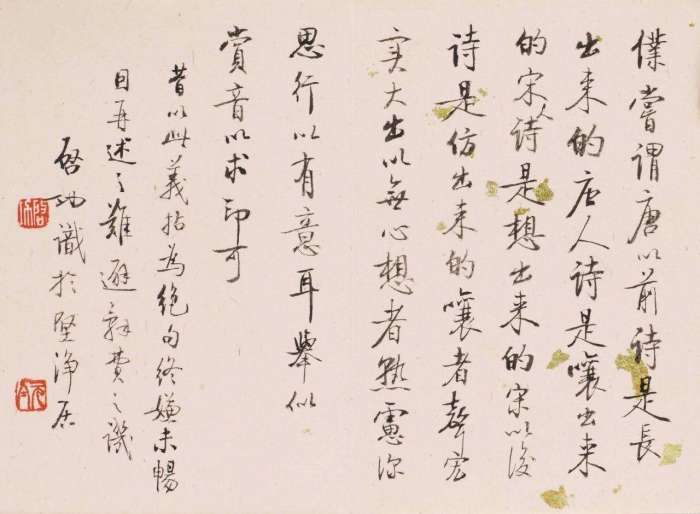 僕嘗謂唐以前詩是長
出来的唐人诗是嚷出来
的宋人诗是想出来的宋以後
诗是仿出来的嚷者聲宏
实大出以無心想者熟慮深
思行以有意耳舉似
賞音以求印可
昔以此義括為絕句終嫌未暢
因再述之難避辭費之譏
啓功識於堅淨居
啓功
元白